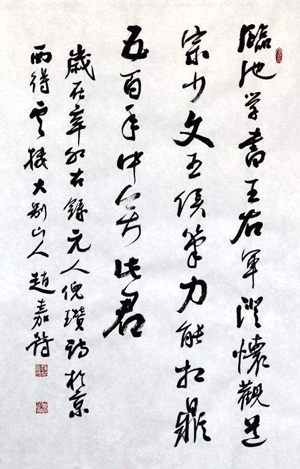 臨池学書王右軍澄懷觀道
宗少文王侯筆力能扛鼎
五百年中無此君
歲在辛卯右錄元人倪瓚詩於京
西得雲樓大别山人趙嘉